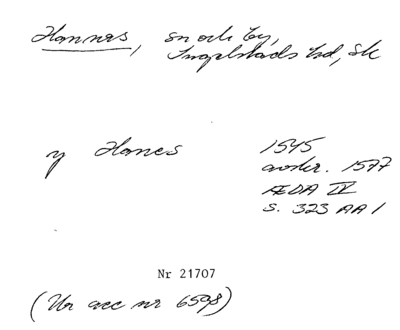 Hannas, sn och by,
Ingelstads hd, Sk
y Hanes 1545
avskr. 1577
ÆDA IV
s. 323 AA 1
Nr 21707
(Ur acc nr 6598)